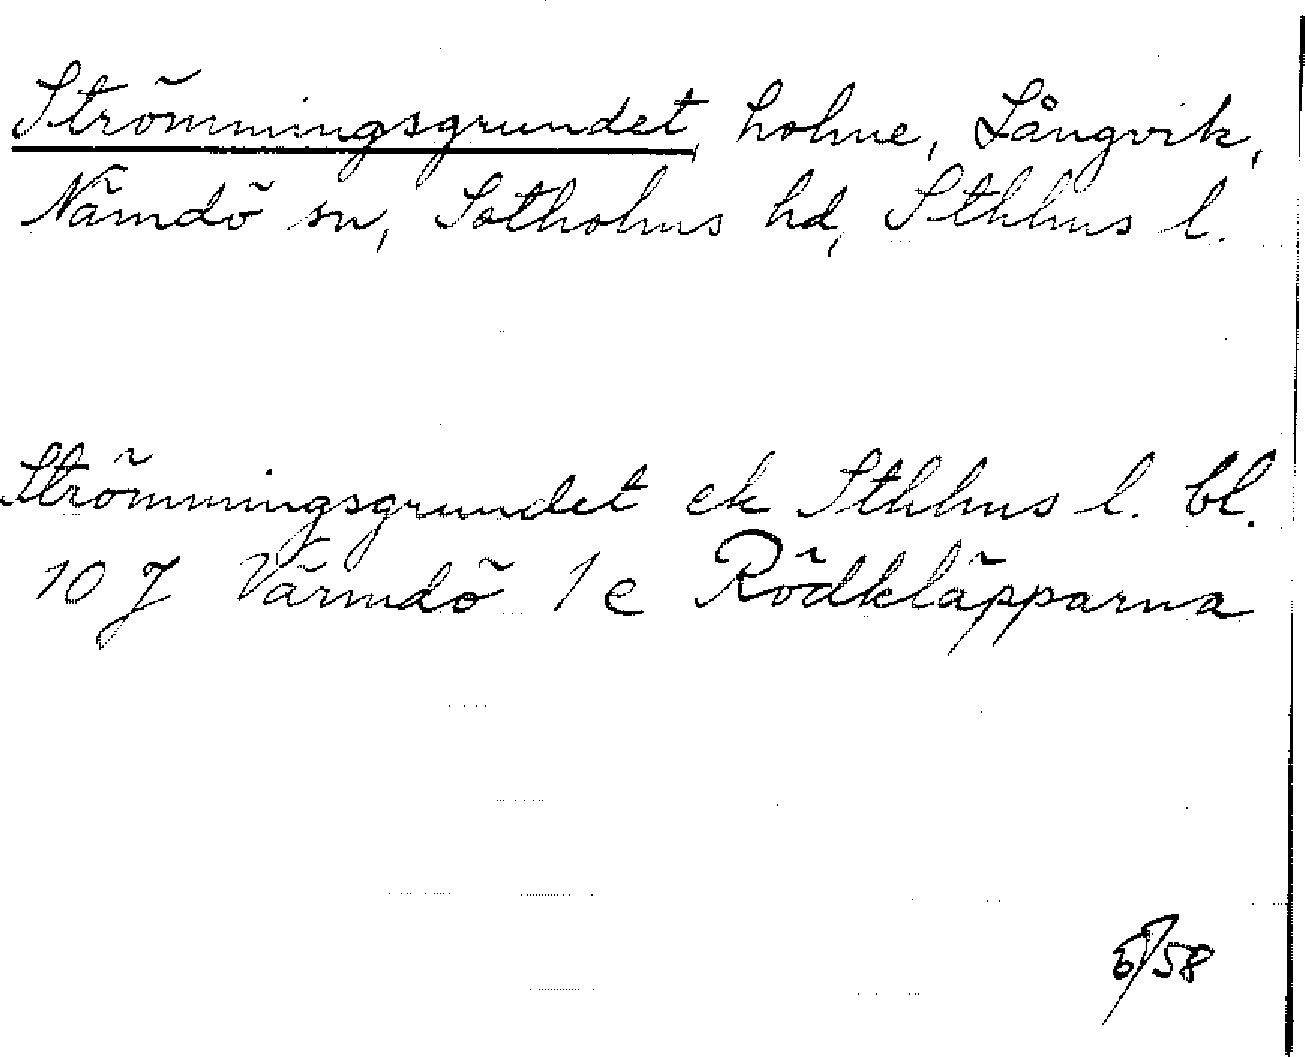 Strömmingsgrundet, holme, Långvik,
Nämdö sn, Sotholms hd, Sthlms l.
Strömmingsgrundet ek Sthlms l. bl.
10 J Värmdö 1 e Rödkläpparna
58